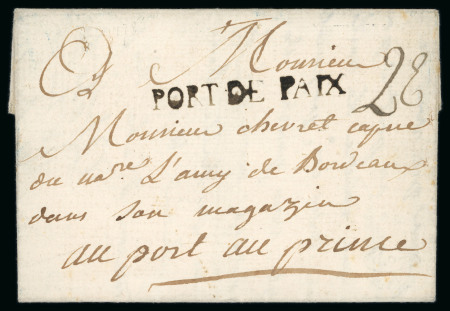 A Monsieur
PORT DE PAIX
Monsieur chevret capne
du navre L'amy de Bordeaux
dans son magazin
au port au prince